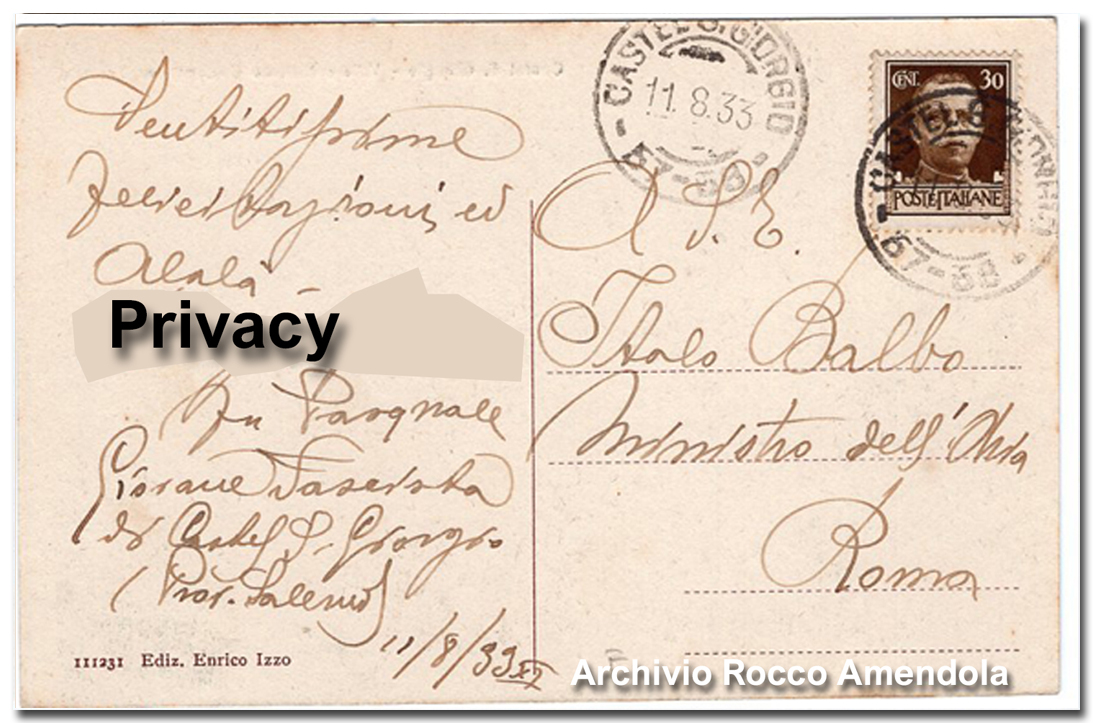 Sentitissime
felicitazioni ed
Alalà -
Privacy
fu Pasquale
Giovane Fascista
di Castel S. Giorgio
(Prov. Salerno)
11/8/33 XI
111231 Ediz. Enrico Izzo
CASTEL S. GIORGIO
11.8.33
57-88
CENT. 30
POSTE ITALIANE
CASTEL S. GIORGIO
57-88
A S. E.
Italo Balbo
Ministro dell'Aria
Roma
Archivio Rocco Amendola